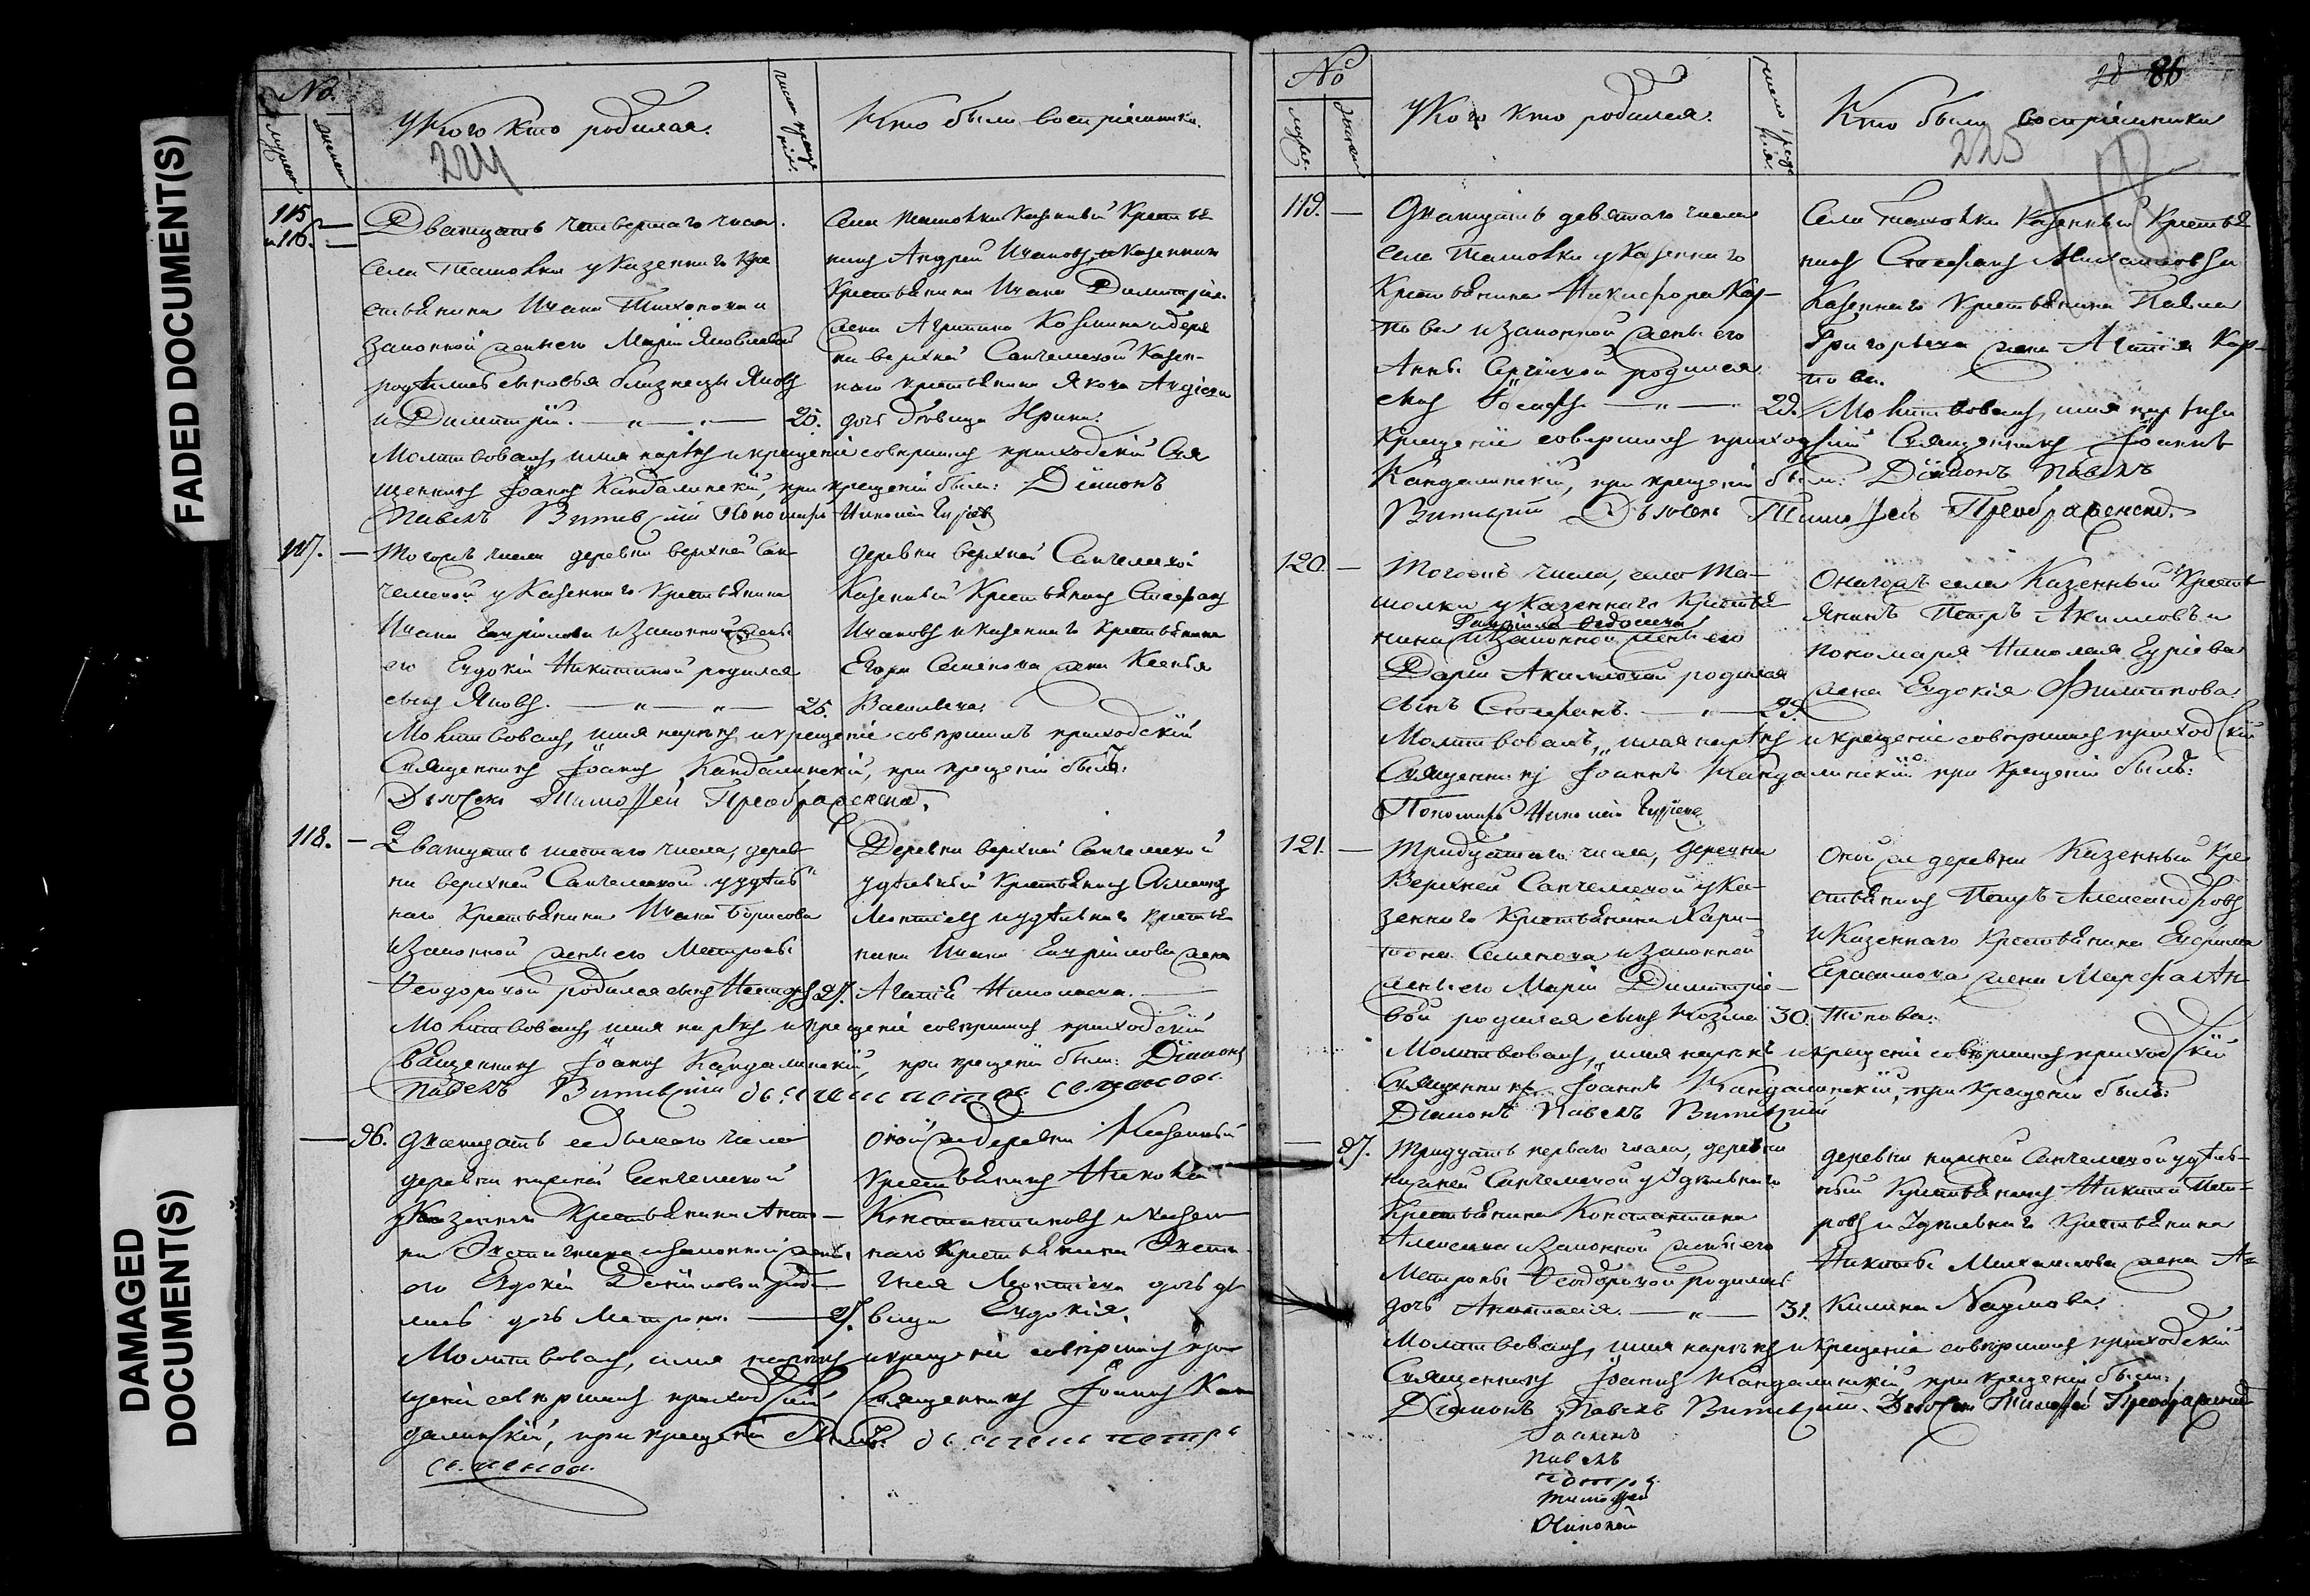 FADED DOCUMENT(S)
DAMAGED
DOCUMENT(S)
№
У кого кто родился.
Кто были восприемники.
224
115
и 116.
Дватцать четвертаго числа.
Села Ташовки у казеннаго кре
стьянина Ивана Тихонова и
законной жены его Маріи Яковлевой
родились сыновья близнецы Яковъ
и Димитрій. — „ — „ — 25.
Села Ташовки Казенный Крестья
нинъ Андрей Ивановъ и Казеннаго
Крестьянина Ивана Димитріева
жена Агрипина Козмина и дерев
ни верхней Санчелеевой Казен-
наго крестьянина Якова
дочь девица Ирина.
Молитвовалъ, имя нарекъ и крещеніе совершилъ приходскій Свя
щенникъ Іоаннъ Кандалинскій, при крещеніи были: Діаконъ
Павелъ Пономарь Николай Гурьевъ
117. —
Тогожъ числа деревни верхней Сан-
челеевой у Казеннаго Крестьянина
Ивана Гаврилова и законной жены
его Евдокіи Никитиной родился
сынъ Яковъ. — „ — „ — 25.
деревни верхней Санчелеевой
Казенный Крестьянинъ Стефанъ
Ивановъ и казеннаго крестьянина
Егора Семенова жена Ксенья
Васильева.
Молитвовалъ, имя нарекъ и крещеніе совершилъ приходскій
Священникъ Іоаннъ Кандалинскій, при крещеніи былъ:
Дьячекъ Тимофей Преображенской.
118. —
Дватцать шестаго числа, дерев
ни верхней Санчелеевой у удель
наго Крестьянина Ивана Борисова
и законной жены его Матроны
Феодоровой родился сынъ Несторъ 27.
Деревни верхней Санчелеевой
удельный Крестьянинъ
Леонтьевъ и удельнаго крестья
нина Ивана Гаврилова жена
Агапія Николаева.
Молитвовалъ, имя нарекъ и крещеніе совершилъ приходскій
Священникъ Іоаннъ Кандалинскій, при крещеніи были: Діаконъ
Павелъ дьячекъ Петръ Семеновъ
— 96.
Дватцать седьмаго числа
деревни нижней Санчелеевой
у Казеннаго Крестьянина Анто-
на и законной жены
его Евдокіи Даниловой роди-
лась дочь Матрона. — 27.
Оной же деревни Казенный
крестьянинъ Николай
Константиновъ и казен-
наго крестьянина
Леонтьева дочь де
вица Евдокія.
Молитвовалъ, имя нарекъ и крещеніе совершилъ кре
щеніе совершилъ приходскій Священникъ Іоаннъ Кан
далинскій, при крещеніи былъ: дьячекъ Петръ
Семеновъ.
№
У кого кто родился.
Кто были восприемники
28 86
225
119. —
Дватцать девятаго числа
села Ташовки у казеннаго
Крестьянина Никифора Кар-
пова и законной жены его
Анны Сергеевой родился
сынъ Іосифъ — „ — 29.
Села Ташовки Казенный Крестья
нинъ Стефанъ Михайловъ и
Казеннаго Крестьянина Павла
Григорьева жена Агапія Кар-
пова.
Молитвовалъ, имя нарекъ и
крещеніе совершилъ приходскій Священникъ Іоаннъ
Кандалинскій, при крещеніи были: Діаконъ Павелъ
Дьячекъ Тимофей Преображенской.
120. —
Тогожъ числа, села Та-
шовки у Казеннаго Крестья
нина и законной жены его
Дарьи Акимовой родился
сынъ Стефанъ. — „ — 29.
Оногожъ села Казенный Кресть
янинъ Петръ Акимовъ и
пономаря Николая Гурьева
жена Евдокія Филипова
Молитвовалъ, имя нарекъ и крещеніе совершилъ приходскій
Священникъ Іоаннъ Кандалинскій при крещеніи былъ:
Пономарь Николай Гурьевъ
121. —
Тридцатаго числа, деревни
Верхней Санчелеевой у Ка-
зеннаго Крестьянина Хари-
тона Семенова и законной
жены его Маріи Димитріе-
вой родился сынъ Козма 30.
Оной же деревни Казенный Кре
стьянинъ Петръ Александровъ
и Казеннаго Крестьянина Ефрема
Герасимова жена Марфа Ан-
типова.
Молитвовалъ, имя нарекъ и крещеніе совершилъ приходскій
Священникъ Іоаннъ Кандалинскій, при крещеніи былъ:
Діаконъ Павелъ
— 97.
Тридцать перваго числа, деревни
нижней Санчелеевой у Удельнаго
Крестьянина Константина
Алексеева и законной жены его
Матроны Феодоровой родилась
дочь Анастасія. — „ — 31.
деревни нижней Санчелеевой удель-
ный Крестьянинъ Никита Пет-
ровъ и Удельнаго Крестьянина
Никиты Михайлова жена А-
килина Наумова.
Молитвовалъ, имя нарекъ и крещеніе совершилъ приходскій
Священникъ Іоаннъ Кандалинскій при крещеніи были:
Діаконъ Павелъ Дьячекъ Тимофей Преображенской
Іоаннъ
Павелъ
Петръ
Тимофей
Николай